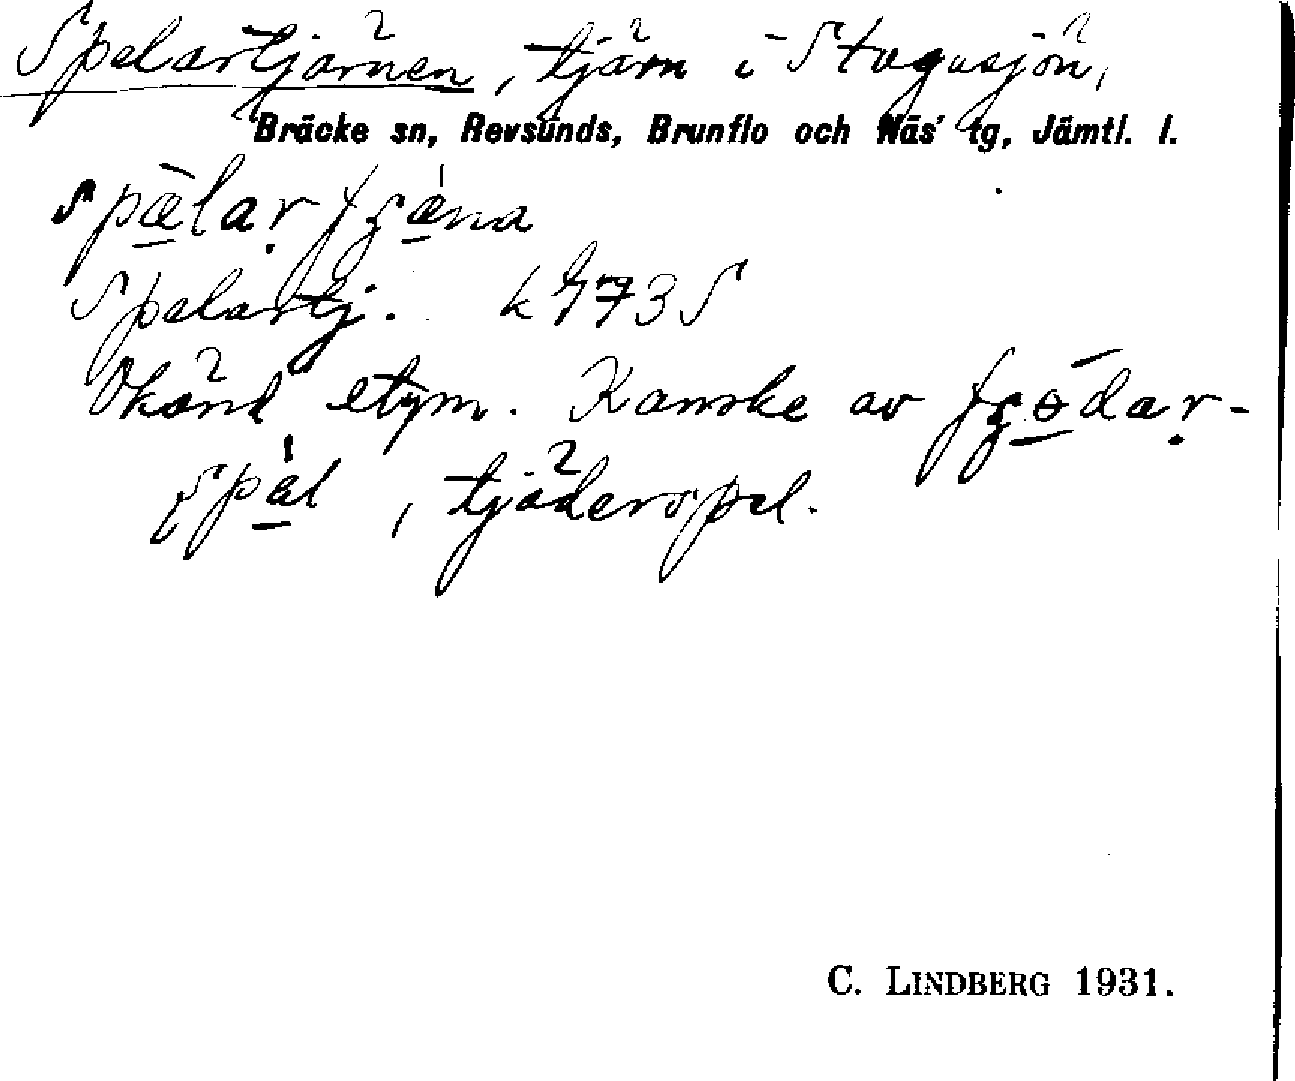 Spelartjärnen, tjärn i Stugusjön,
Bräcke sn, Revsunds, Brunflo och Näs' tg, Jämtl. l.
Spelartj.
Okänd etym. Kanske av
, tjäderspel.
C. LINDBERG 1931.